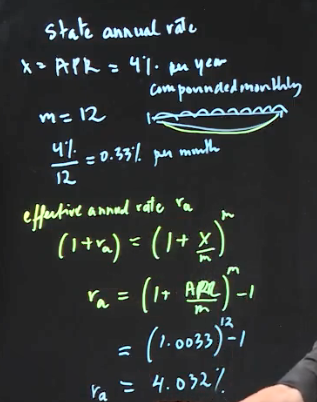 state annual rate
x = APR = 4% per year
compounded monthly
m = 12
4%/12 = 0.33% per month
effective annual rate r_a
(1+r_a) = (1 + x/m)^m
r_a = (1 + APR/m)^m - 1
= (1.0033)^12 - 1
r_a = 4.032%